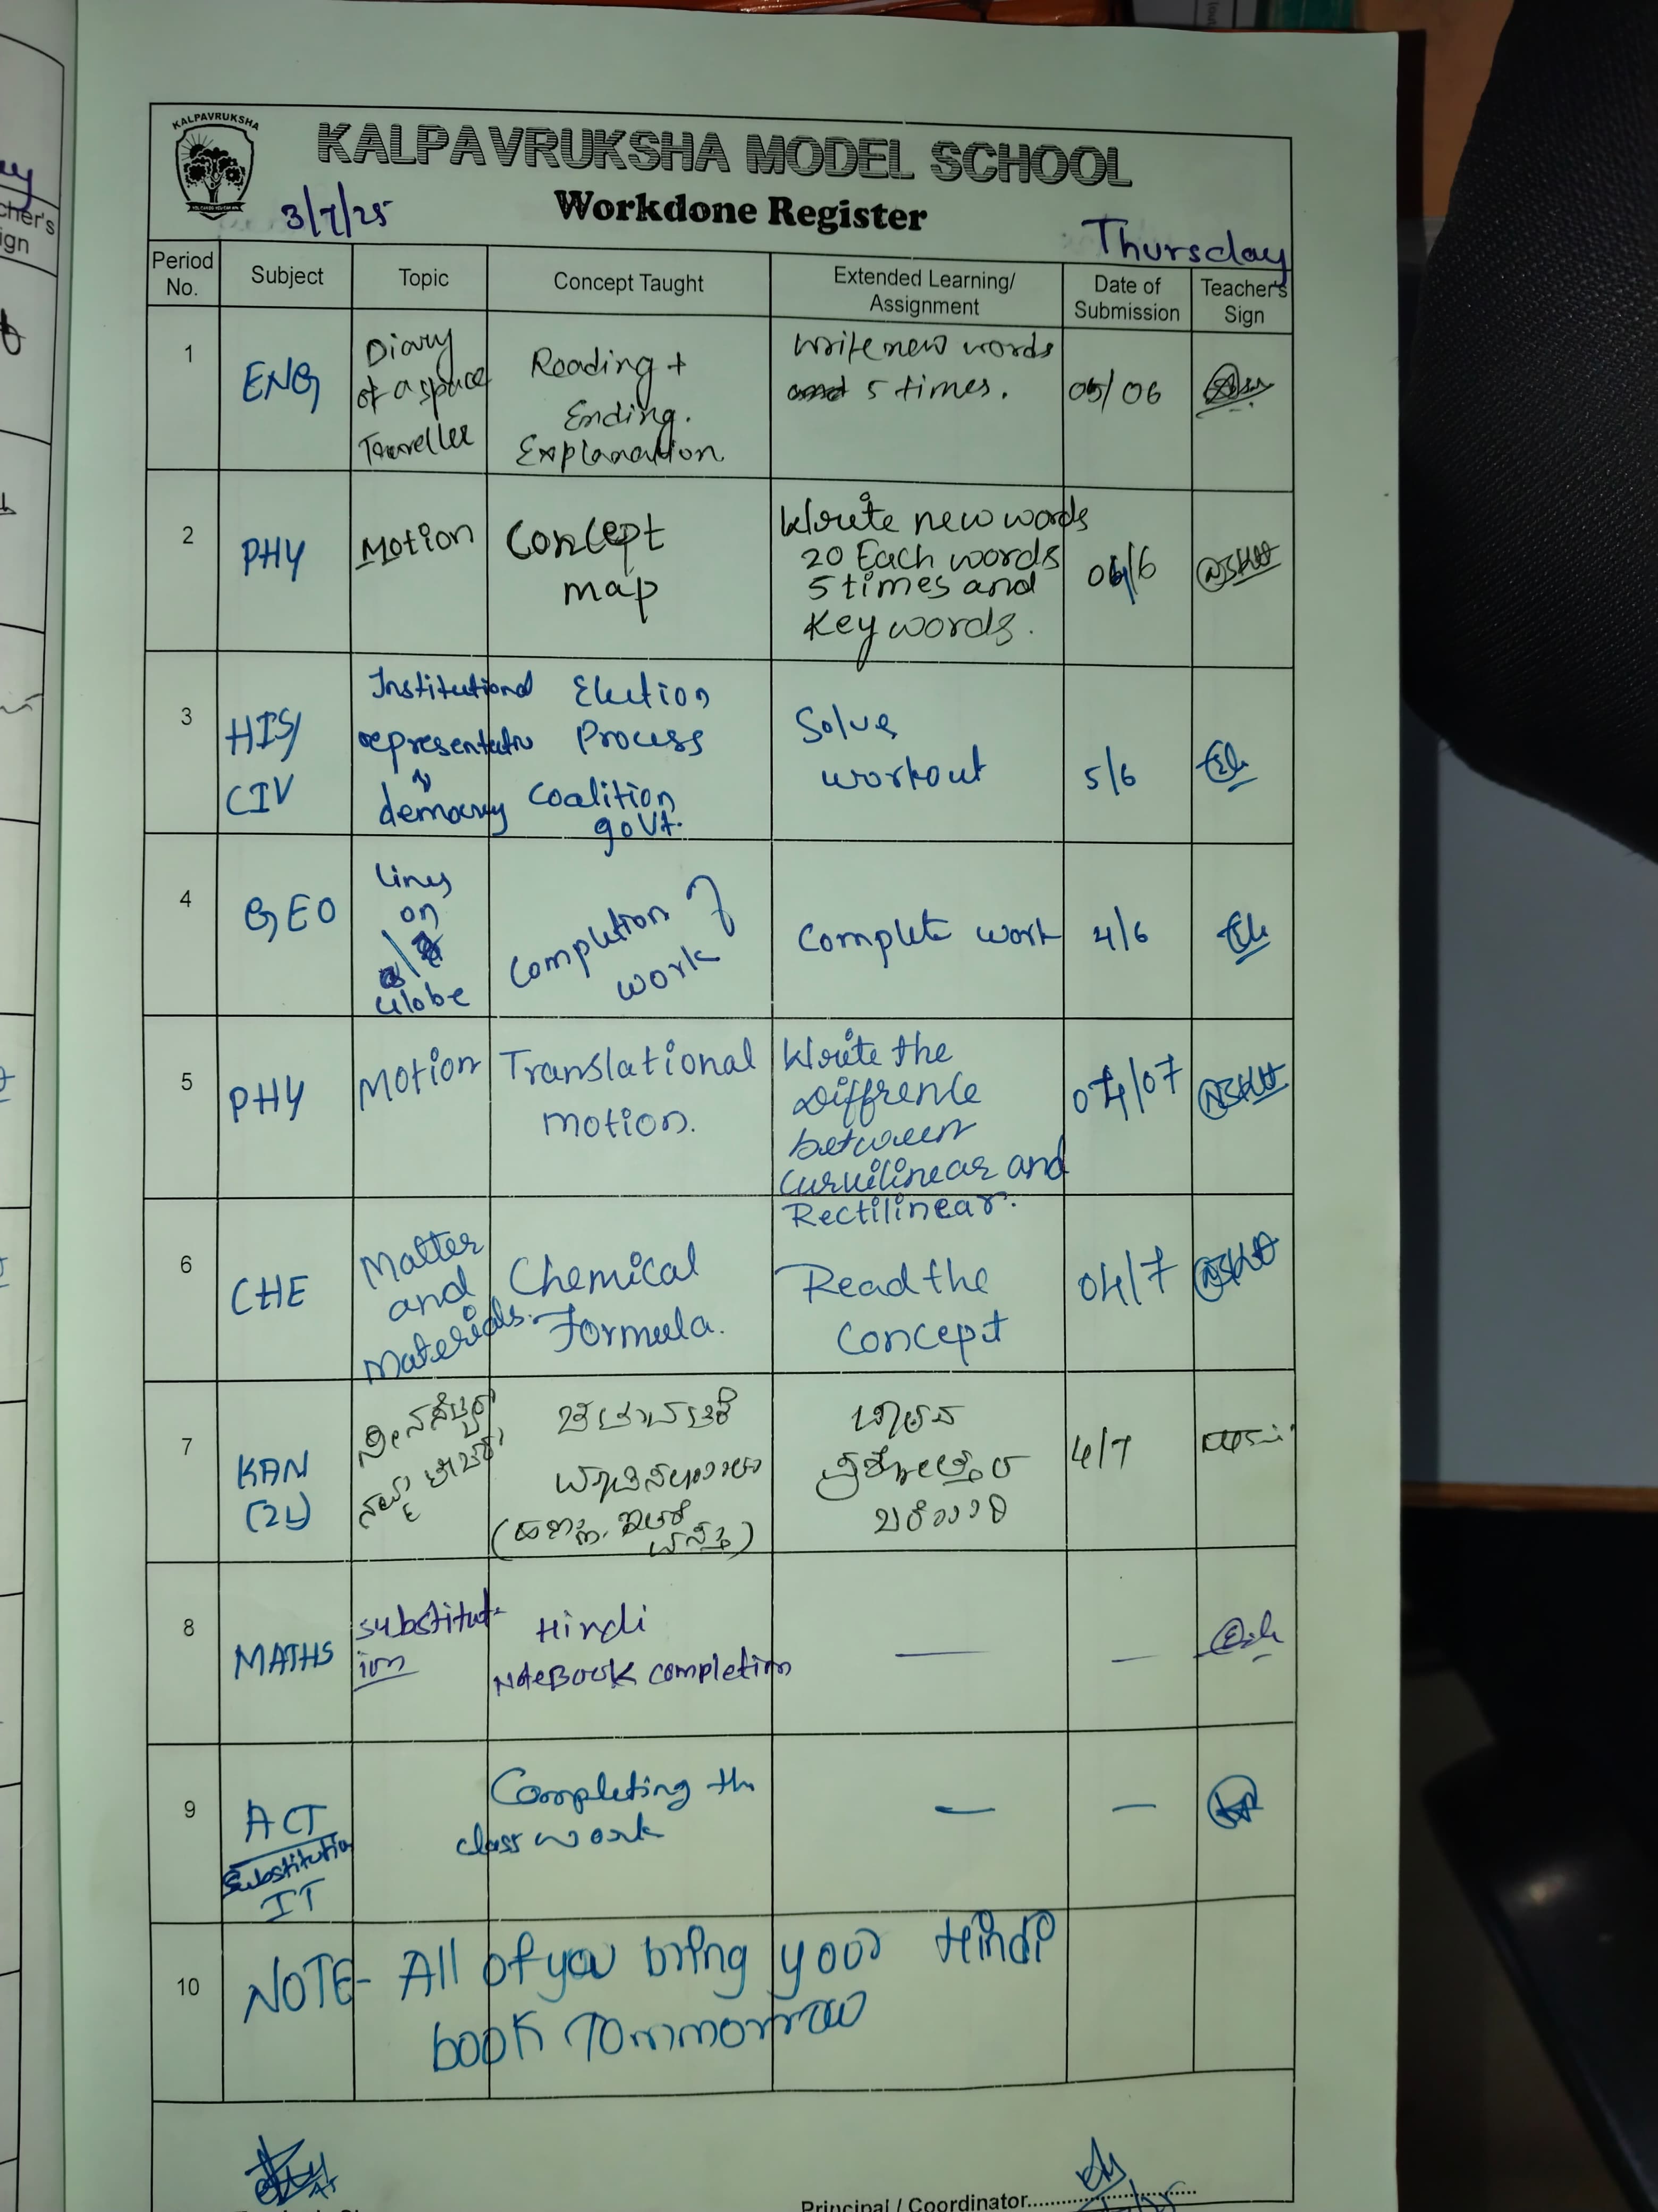 KALPAVRUKSHA
KALPAVRUKSHA MODEL SCHOOL
3/7/25
Workdone Register
Thursday
Period No.
Subject
Topic
Concept Taught
Extended Learning/
Assignment
Date of
Submission
Teacher's
Sign
1
ENG
Diary
of a space
Traveller
Reading +
Ending.
Explanation.
Write new words
5 times.
05/06
2
PHY
Motion
Concept
map
Write new words
20 Each words
5 times and
Key words.
3
HIS/
CIV
Institutional
representative
democracy
Election
Process
Coalition
govt.
Solve
workout
5/6
4
GEO
Lines
on
Globe
Completion of
work
Complete work
4/6
5
PHY
Motion
Translational
motion.
Write the
Diffrence
between
Curvilinear and
Rectilinear.
04/07
6
CHE
Matter
and
Materials.
Chemical
Formula.
Read the
Concept
04/7
7
KAN
(2L)
4/7
8
MATHS
substitut-
ion
Hindi
NoteBook completion
—
—
9
ACT
Substitution
IT
Completing the
class work
—
—
10
NOTE- All of you bring your Hindi
book Tommorrow
Principal / Coordinator